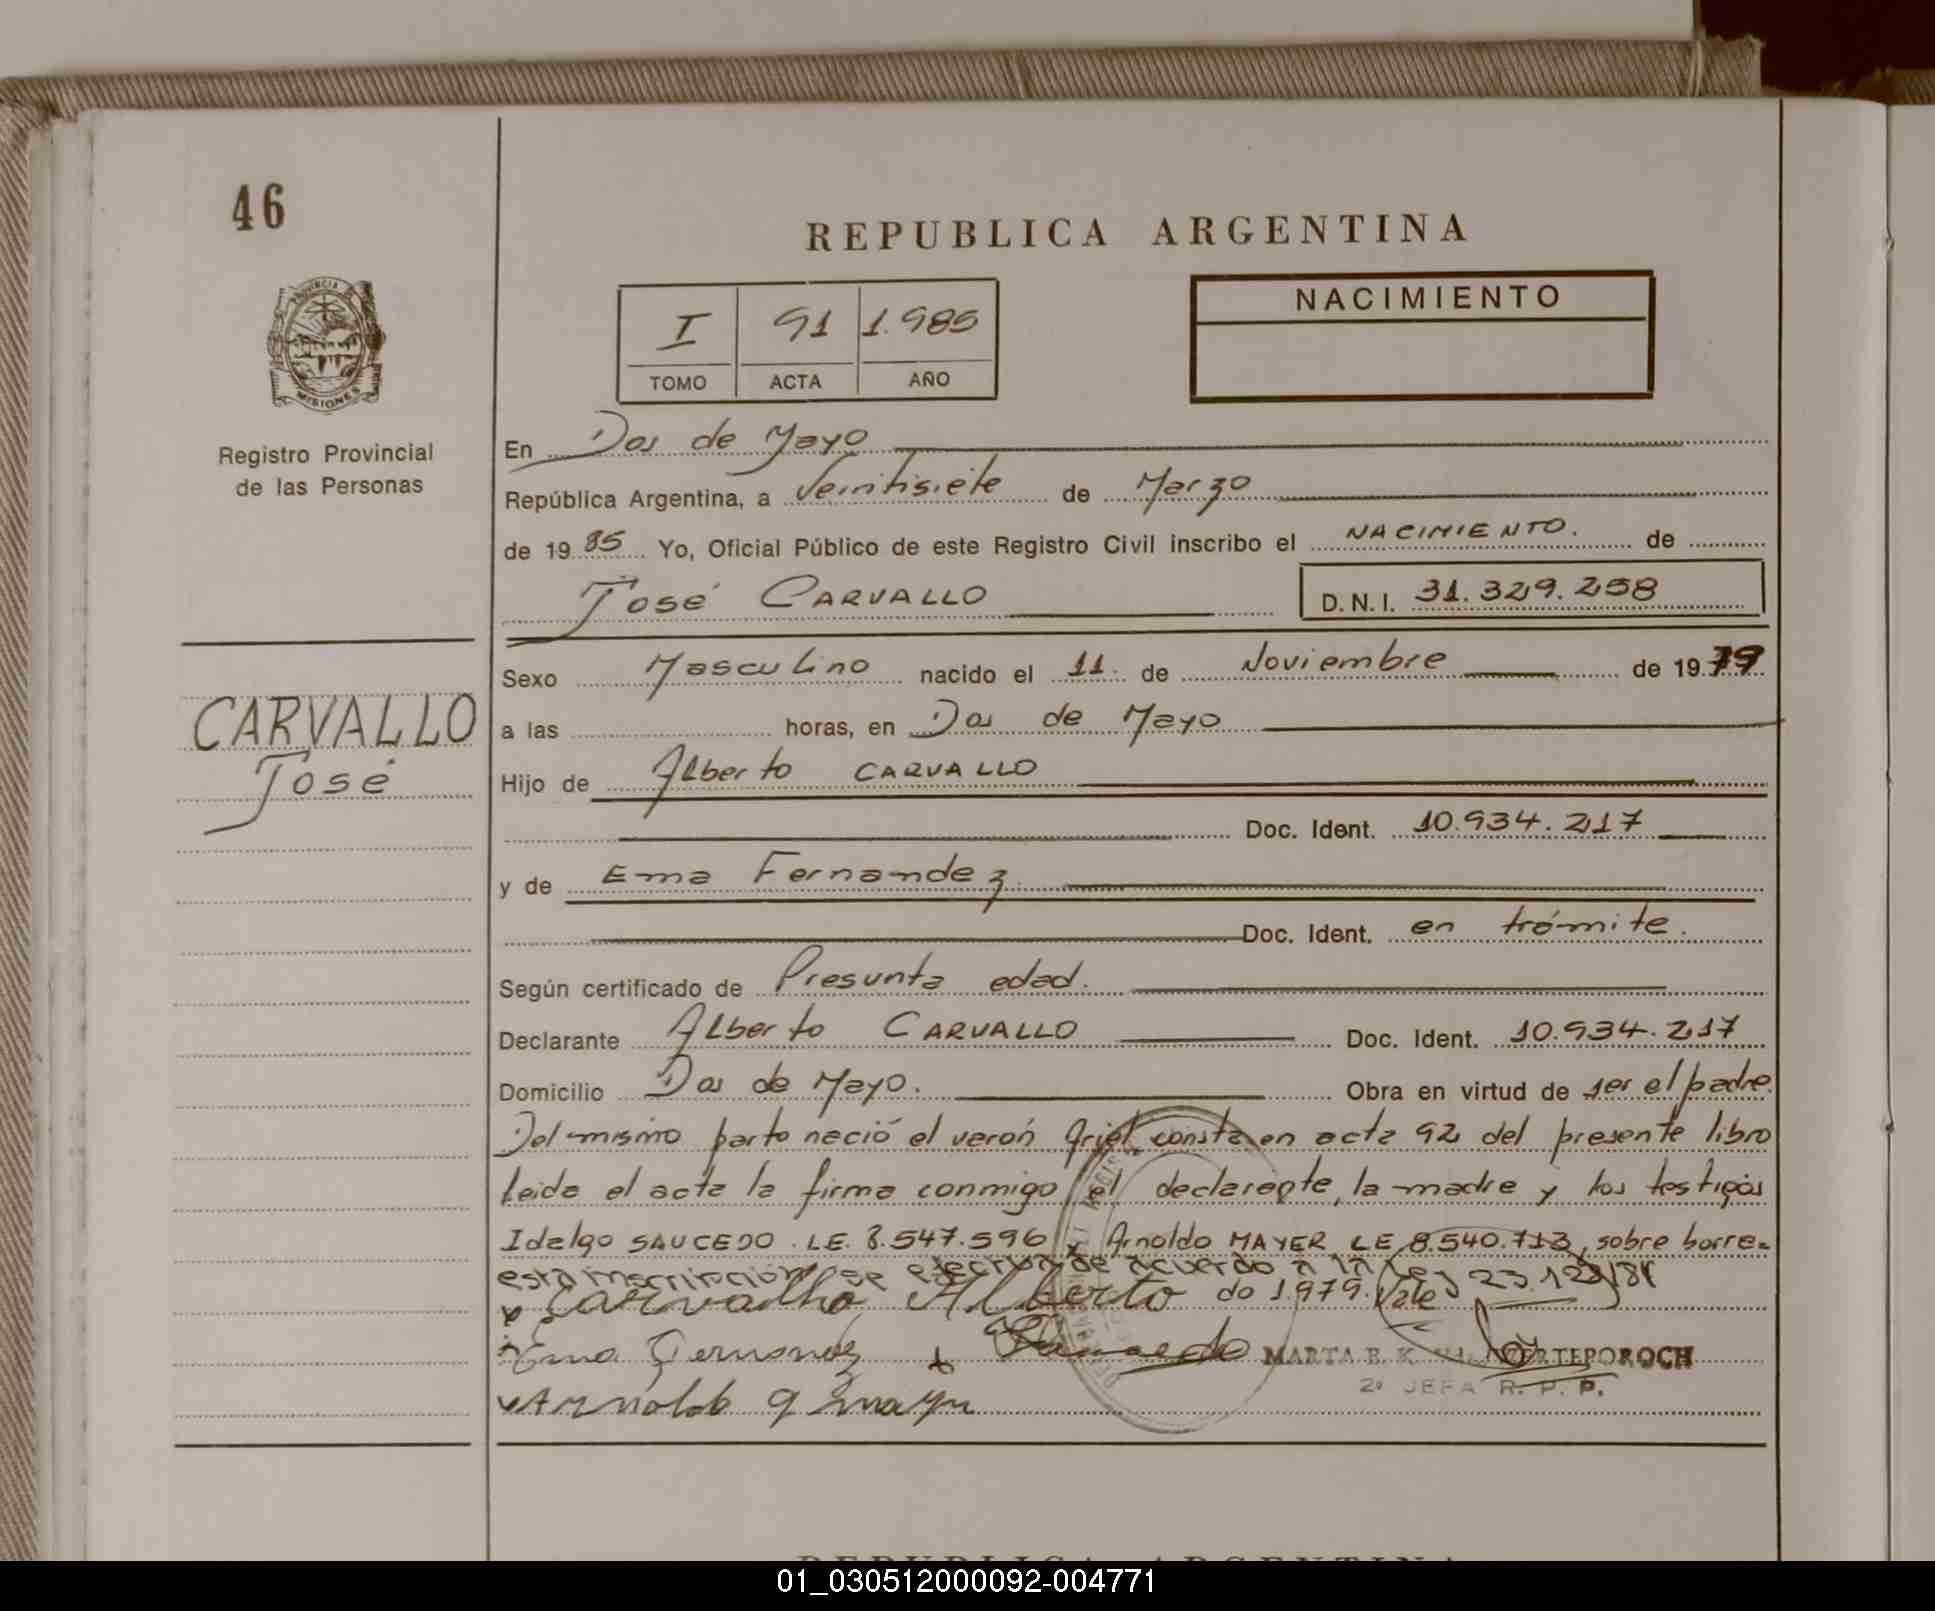 46
REPUBLICA ARGENTINA
PROVINCIA DE
MISIONES
I 91 1.985
TOMO ACTA AÑO
NACIMIENTO
Registro Provincial
de las Personas
En Dos de Mayo
República Argentina, a Veintisiete de Marzo
de 19 85 Yo, Oficial Público de este Registro Civil inscribo el NACIMIENTO. de
José CARVALLO D.N.I. 31.329.258
CARVALLO
José
Sexo Masculino nacido el 11. de Noviembre de 19 79
a las horas, en Dos de Mayo
Hijo de Alberto CARVALLO
Doc. Ident. 10.934.217
y de Ema Fernandez
Doc. Ident. en trámite.
Según certificado de Presunta edad.
Declarante Alberto CARVALLO Doc. Ident. 10.934.217
Domicilio Dos de Mayo. Obra en virtud de ser el padre.
Del mismo parto nació el verón Ariel consta en acta 92 del presente libro
leida el acta la firma conmigo el declarante, la madre y los testigos
Idalgo SAUCEDO. LE. 8.547.596 y Arnoldo MAYER LE 8.540.713, sobre borra=
esta inscripción se efectua de acuerdo a la Ley 23.128/84
do 1.979. Vale
Carvallho Alberto
Ema Fernandez
MARTA B. K.
2º JEFA R. P. P.
01_030512000092-004771